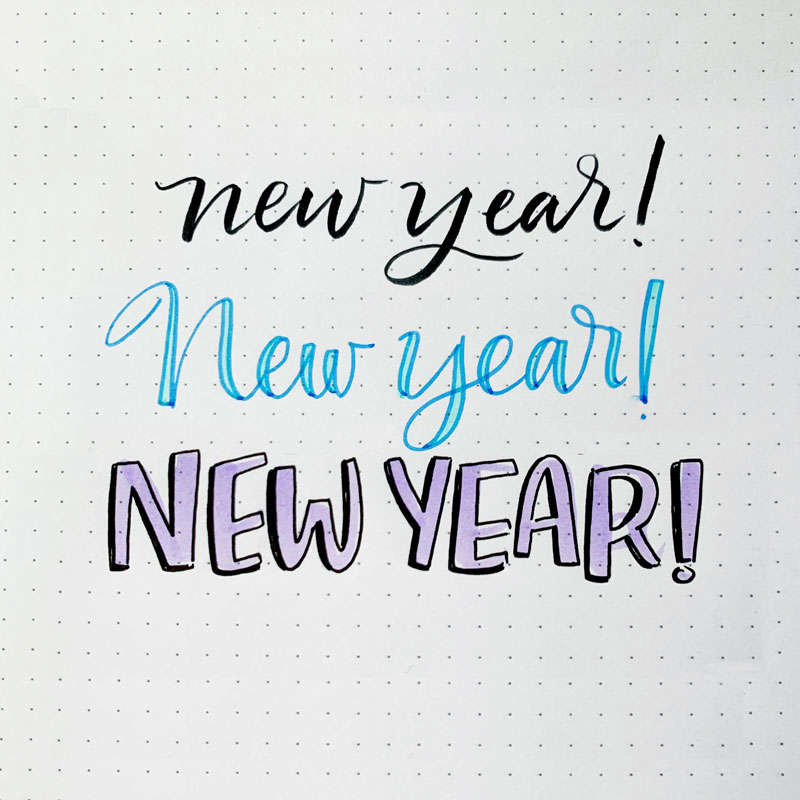 new year!
New year!
NEW YEAR!